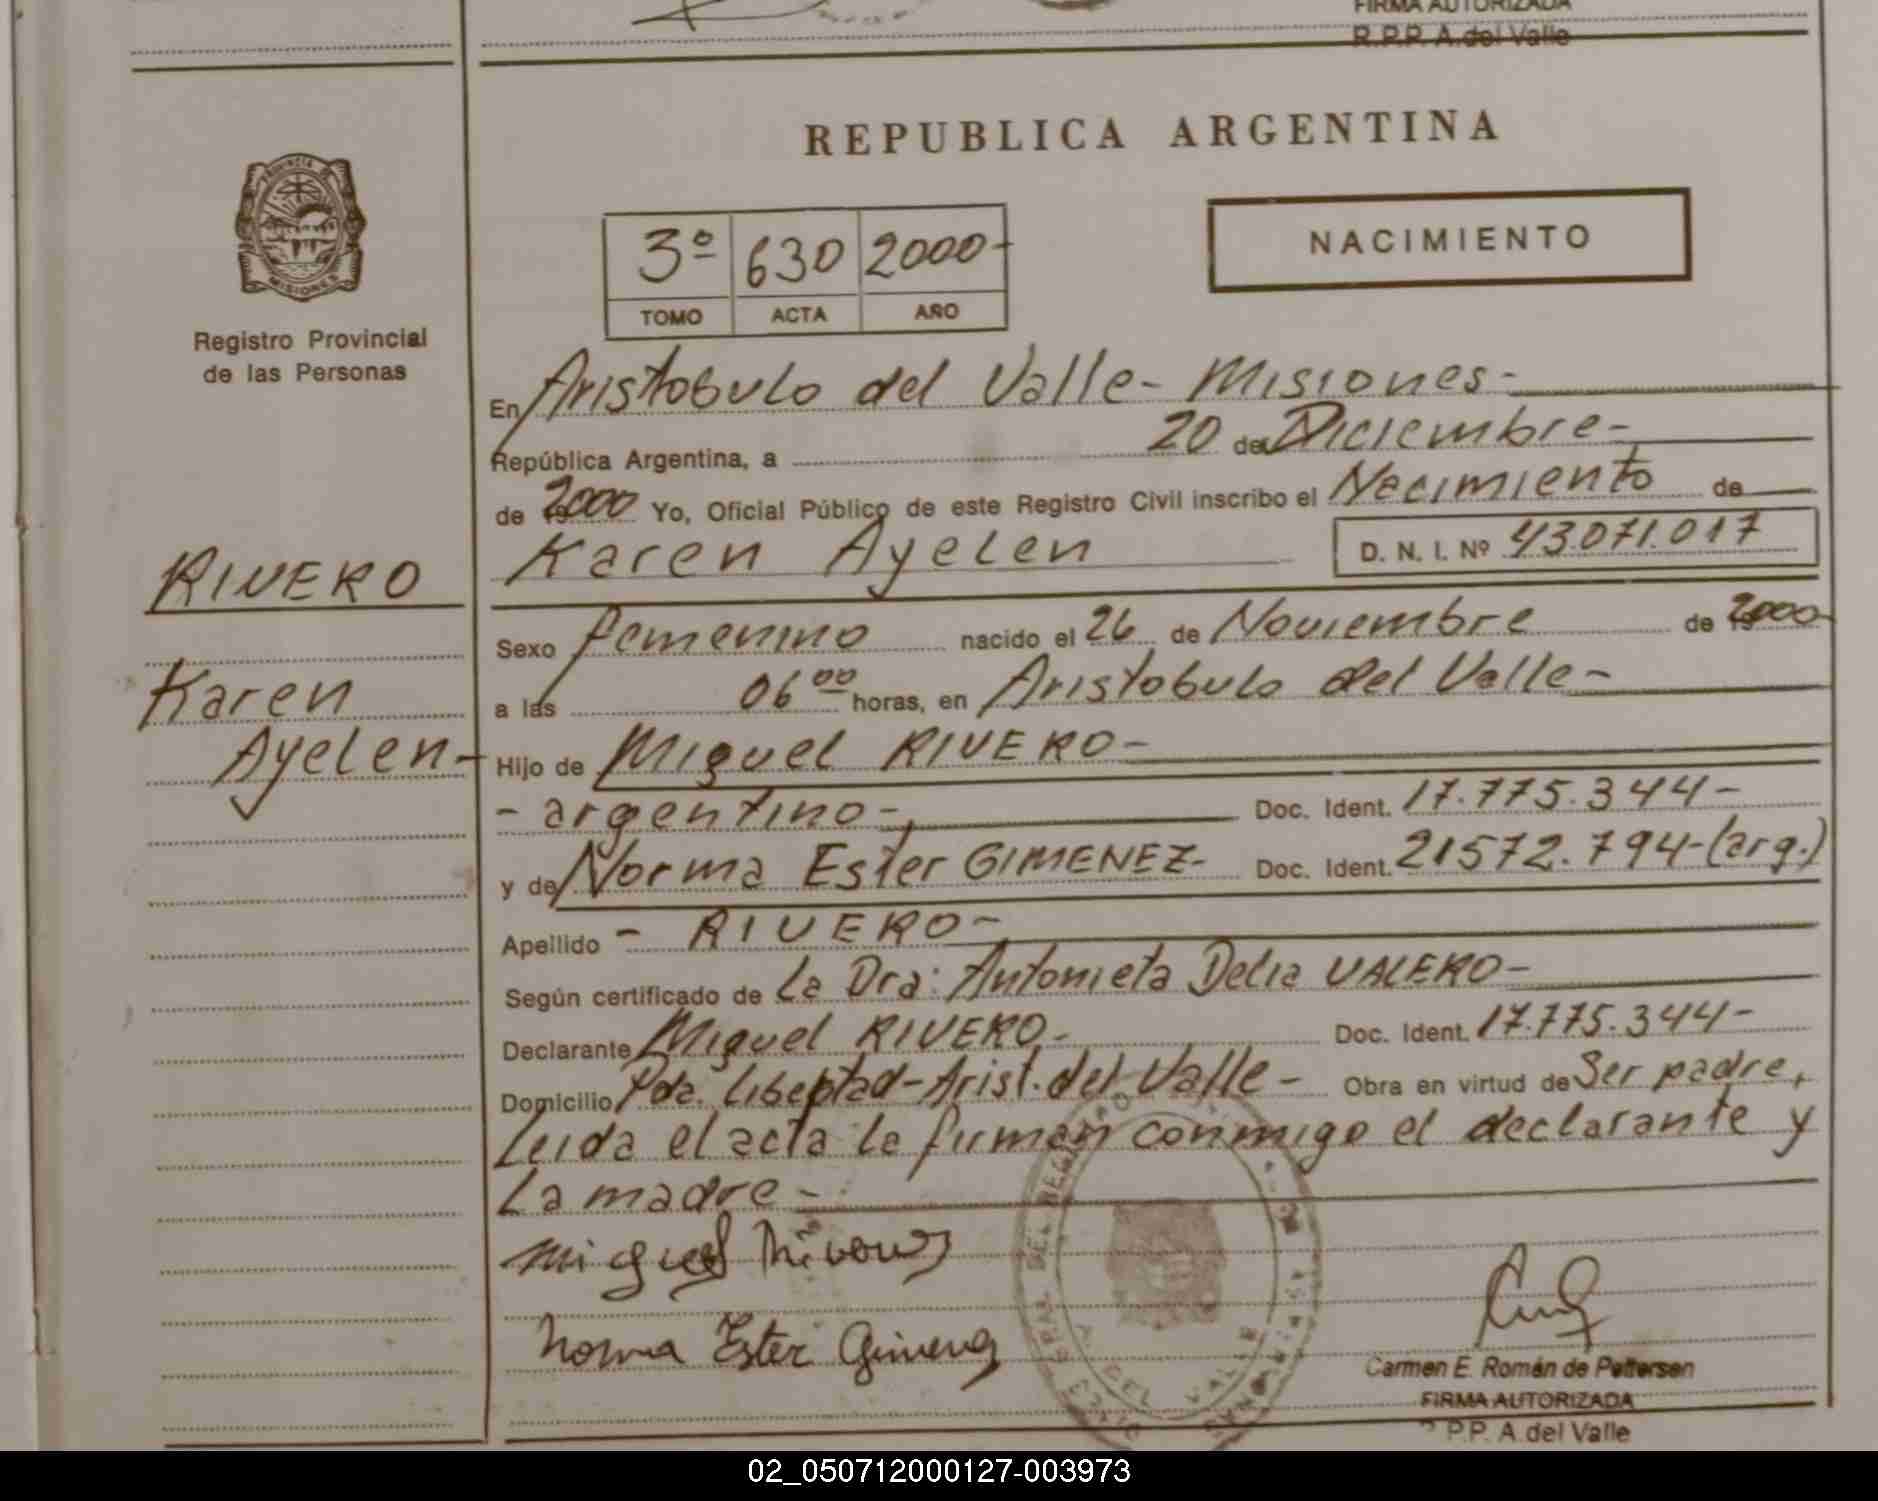 FIRMA AUTORIZADA
R.P.P. A.del Valle
REPUBLICA ARGENTINA
PROVINCIA DE
MISIONES
Registro Provincial
de las Personas
3º 630 2000-
TOMO ACTA AÑO
NACIMIENTO
En Aristobulo del Valle- Misiones-
República Argentina, a 20 de Diciembre-
de 2000 Yo, Oficial Público de este Registro Civil inscribo el Nacimiento de
Karen Ayelen D. N. I. Nº 43.071.017
RIVERO
Karen
Ayelen-
Sexo femenino nacido el 26 de Noviembre de 2000-
a las 06 00 horas, en Aristobulo del Valle-
Hijo de Miguel RIVERO-
- argentino-, Doc. Ident. 17.775.344-
y de Norma Ester GIMENEZ- Doc. Ident. 21572.794-(arg.)
Apellido - RIVERO-
Según certificado de La Dra: Antonieta Delia VALERO-
Declarante Miguel RIVERO- Doc. Ident. 17.775.344-
Domicilio Pda. Libertad-Arist. del Valle- Obra en virtud de Ser padre,
Leida el acta la firman conmigo el declarante y
La madre-
Miguel Rivero
Norma Ester Gimenez
DEL REGISTRO
A. DEL VALLE
Carmen E. Román de Pettersen
FIRMA AUTORIZADA
P.P. A.del Valle
02_050712000127-003973